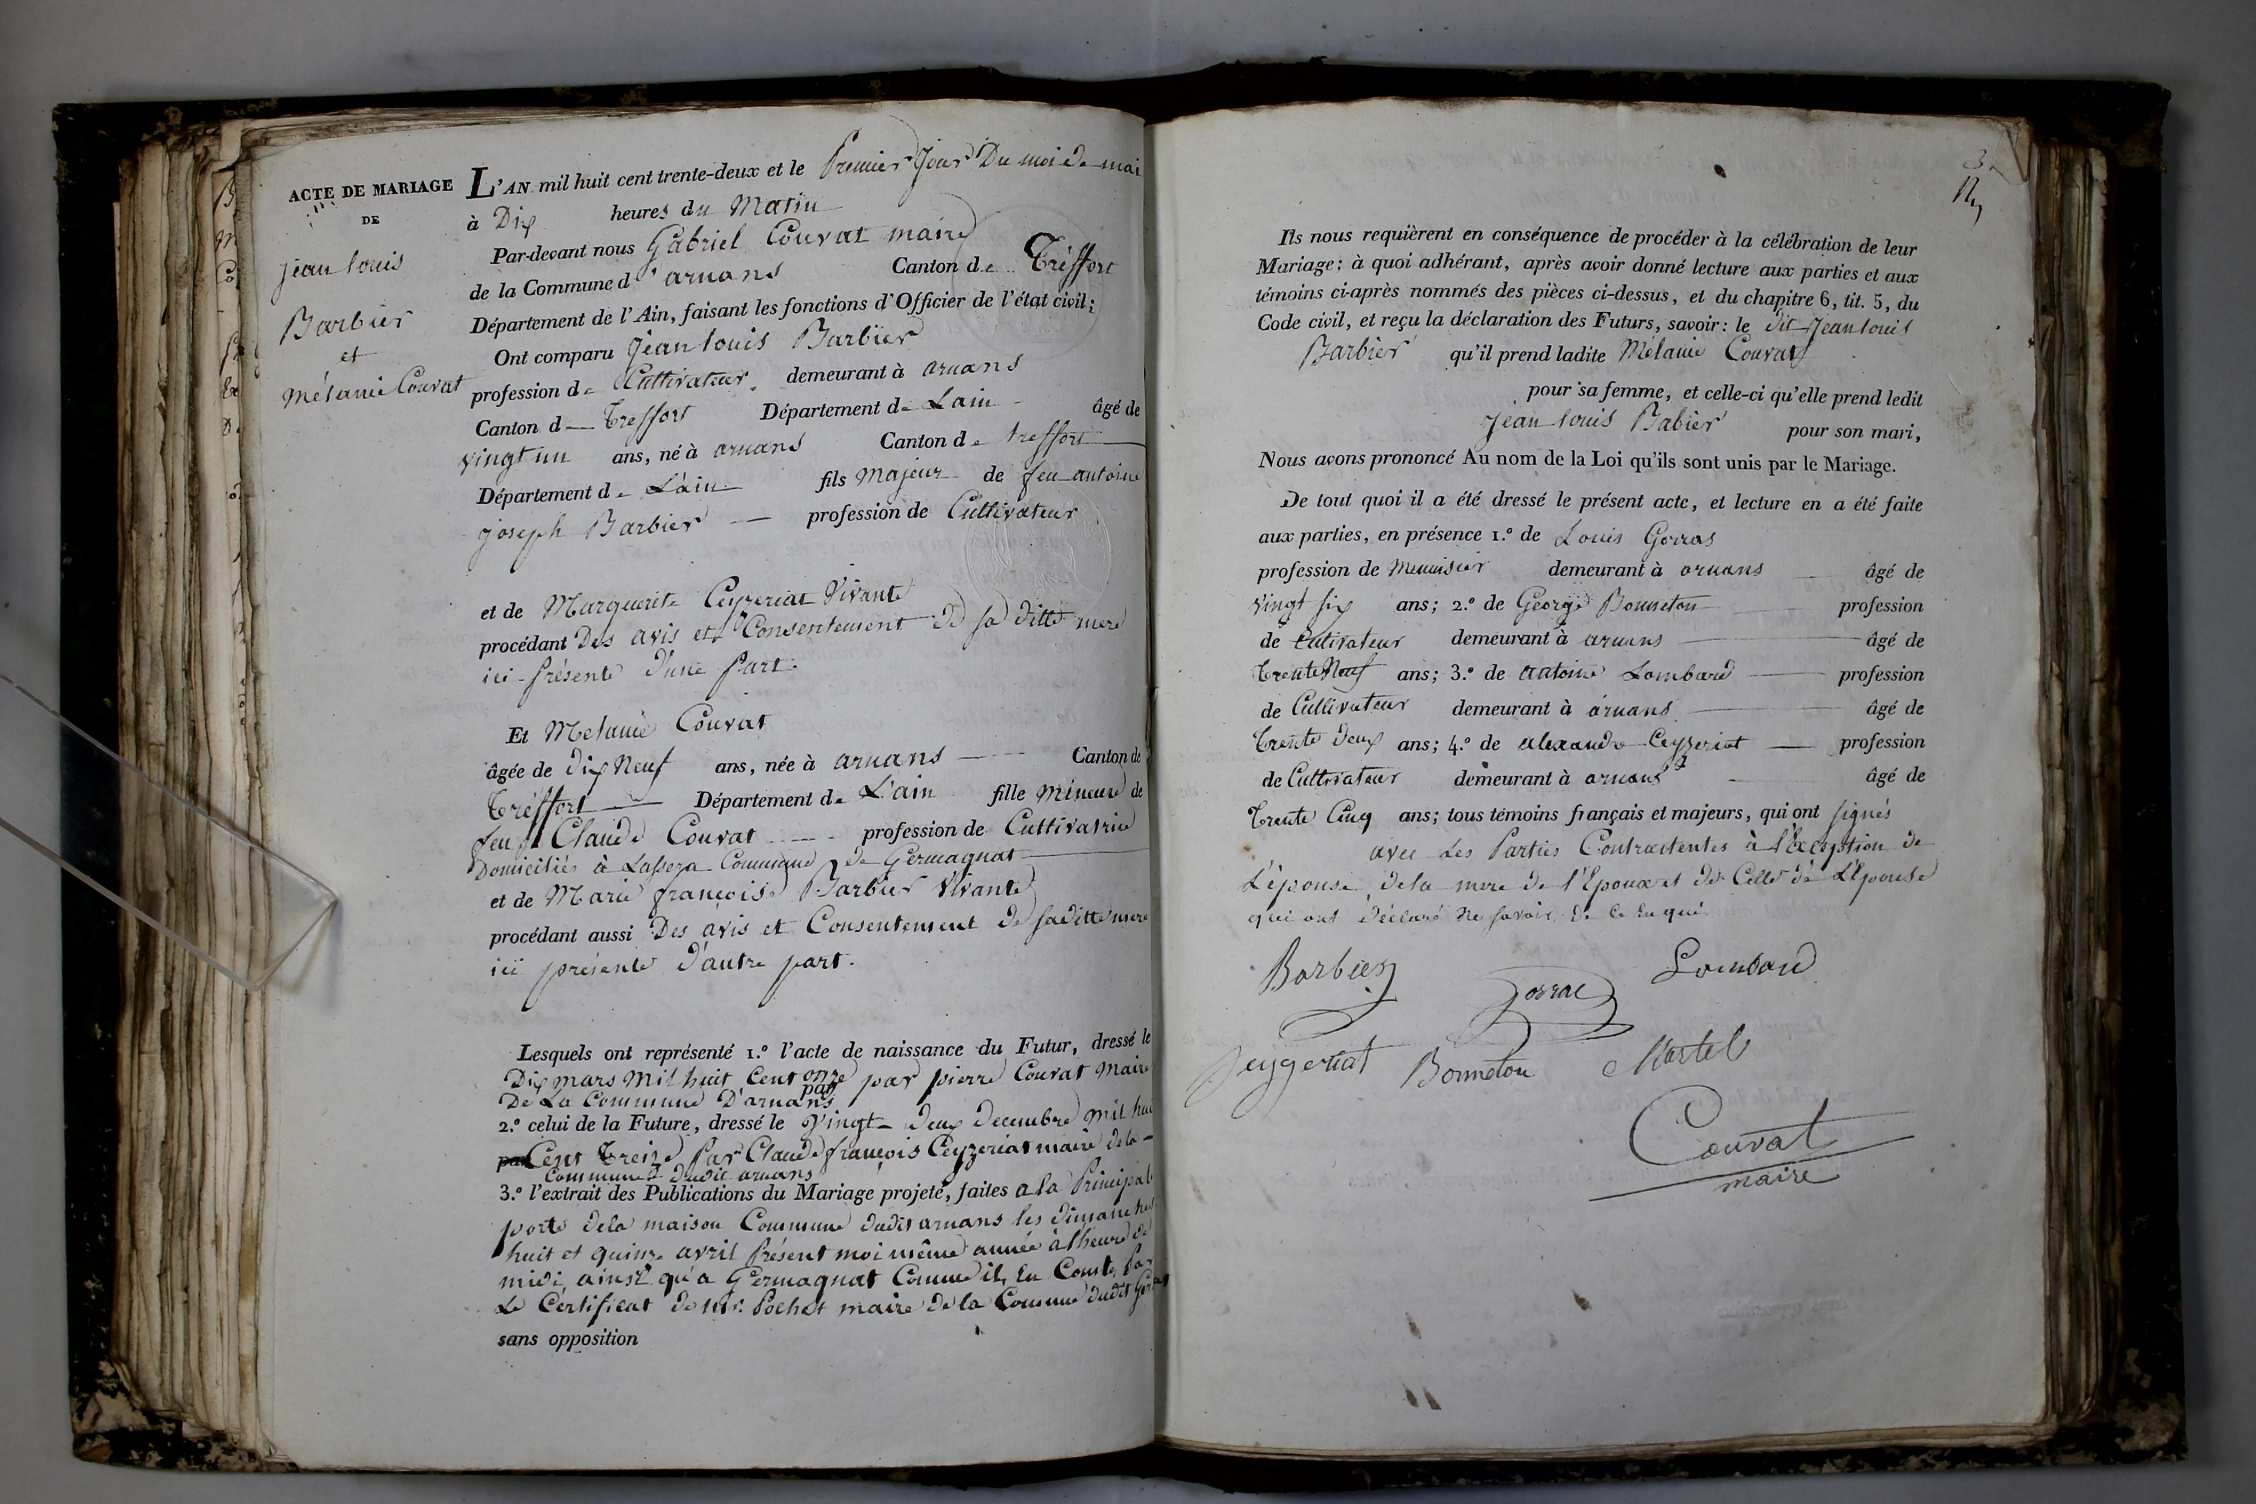 ACTE DE MARIAGE
DE
Jean Louis
Barbier
et
Mélanie Couvat
L'AN mil huit cent trente-deux et le Premier Jour Du moi de mai
à Dix heures du Matin
Par-devant nous Gabriel Couvat maire
de la Commune d'arnans Canton de Tréffort
Département de l'Ain, faisant les fonctions d'Officier de l'état civil;
Ont comparu Jean Louis Barbier
profession de Cultivateur demeurant à arnans
Canton d Treffort Département de Lain âgé de
vingt un ans, né à arnans Canton de treffort
Département de L'ain fils Majeur de feu antoine
joseph Barbier profession de Cultivateur
et de Marguerite Ceyzeriat Vivante
procédant Des avis et Consentement de sa ditte mere
ici présente d'une Part.
Et Melanie Couvat
âgée de dix Neuf ans, née à arnans Canton de
Tréffort Département de L'ain fille mineure de
feu Claude Couvat profession de Cultivatrice
Domiciliée à Commune de Germagnat
et de Marie françoise Barbier Vivante
procédant aussi Des avis et Consentement de saditte mere
ici présente d'autre part.
Lesquels ont représenté 1.º l'acte de naissance du Futur, dressé le
Dix mars Mil huit Cent onze par pierre Couvat Maire
De La Commune D'arnans par
2.º celui de la Future, dressé le Vingt-deux decembre mil hui
par Cent Treize Par Claude françois Ceyzeriat maire dela
Commune dudit arnans
3.º l'extrait des Publications du Mariage projeté, faites a la Principale
porte dela maison Commune dudit arnans les dimanches
huit et quinze avril Présent moi même année à l'heure de
midi ainsi qu'a Germagnat Comme il En Conste Par
Le Certificat de mr. Pochet maire de la Commune dudit Ger
sans opposition
3
Ils nous requièrent en conséquence de procéder à la célébration de leur
Mariage; à quoi adhérant, après avoir donné lecture aux parties et aux
témoins ci-après nommés des pièces ci-dessus, et du chapitre 6, tit. 5, du
Code civil, et reçu la déclaration des Futurs, savoir: le dit Jean Louis
Barbier qu'il prend ladite Mélanie Couvat
pour sa femme, et celle-ci qu'elle prend ledit
Jean Louis Babier pour son mari,
Nous avons prononcé Au nom de la Loi qu'ils sont unis par le Mariage.
De tout quoi il a été dressé le présent acte, et lecture en a été faite
aux parties, en présence 1.º de Louis Gorras
profession de Menuisier demeurant à arnans âgé de
vingt six ans; 2.º de George Bonneton profession
de Cultivateur demeurant à arnans âgé de
Trente Neuf ans; 3.º de antoine Lombard profession
de Cultivateur demeurant à arnans âgé de
Trente Deux ans; 4.º de alexandre Ceyzeriat profession
de Cultivateur demeurant à arnans âgé de
Trente Cinq ans; tous témoins français et majeurs, qui ont signés
avec Les Parties Contractentes à l'Exception de
L'épouse, dela mere de l'Epoux et de Celle de L'Epouse
qui ont déclaré ne savoir de ce Enqué
Barbier
Gorrac
Lombard
Seyzeriat
Bonneton
Martel
Couvat
maire